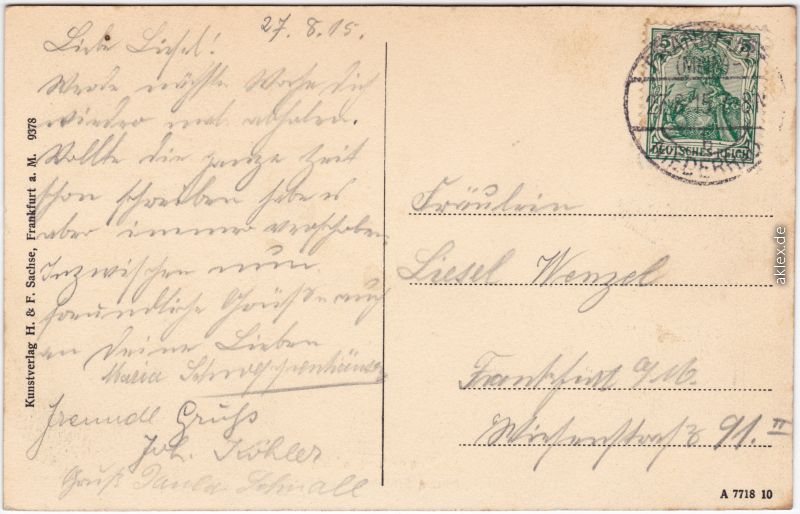 27. 8. 15.
Liebe Liesel!
Werde nächste Woche dich
wieder mal abholen.
Wollte die ganze Zeit
schon schreiben habe es
aber immer verschoben
Inzwischen nun
freundliche Grüße auch
an Deine Lieben
Maria
freundl Gruß
Joh. Köhler
Gruß Paula Schnall
Kunstverlag H. & F. Sachse, Frankfurt a. M. 9378
5 5
DEUTSCHES REICH
FRANKFURT
(MAIN)
27.8.15
NIEDERRAD
Fräulein
Liesel Wenzel
Frankfurt a/M.
Wiesenstraß 91. II
A 7718 10
aklex.de